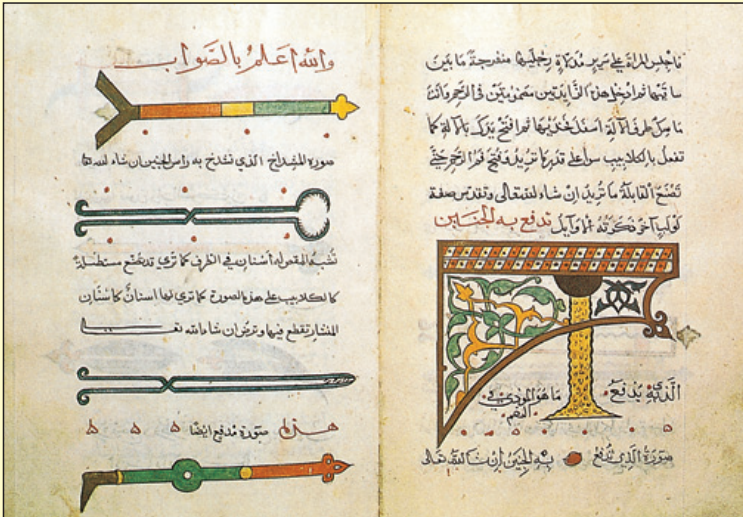 فاجلس المراة على سرير مدلاة رجليها منفرجة ما بين
ساقيها ثم ادخل هذه الزايدتين مضمومتين في الرحم وانت
ماسك طرف الآلة اسفل فخذيها ثم افتح يدك بالآلة كما
تفعل بالكلاليب سوا على قدر ما تريد فتح فم الرحم حتى
تصنع القابلة ما تريد ان شاء لله تعالى وتقدس صفة
لولب آخر ذكرته الاوايل تدفع به الجنين
الذي يدفع ما هو المودي في
الفم
صورة الذي تدفع به الجنين إن شا الله تعالى
والله اعلم بالصواب
صورة المشداخ الذي تشدخ به راس الجنين ان شاء لله ها
تشبه المقص له أسنان في الطرف كما تري قد يصنع مستطيلة
كالكلاليب على هذه الصورة كما تري لها اسنان كاسنان
المنشار تقطع فيها وترض ان شاء الله تعا
هذه صورة مدفع ايضا